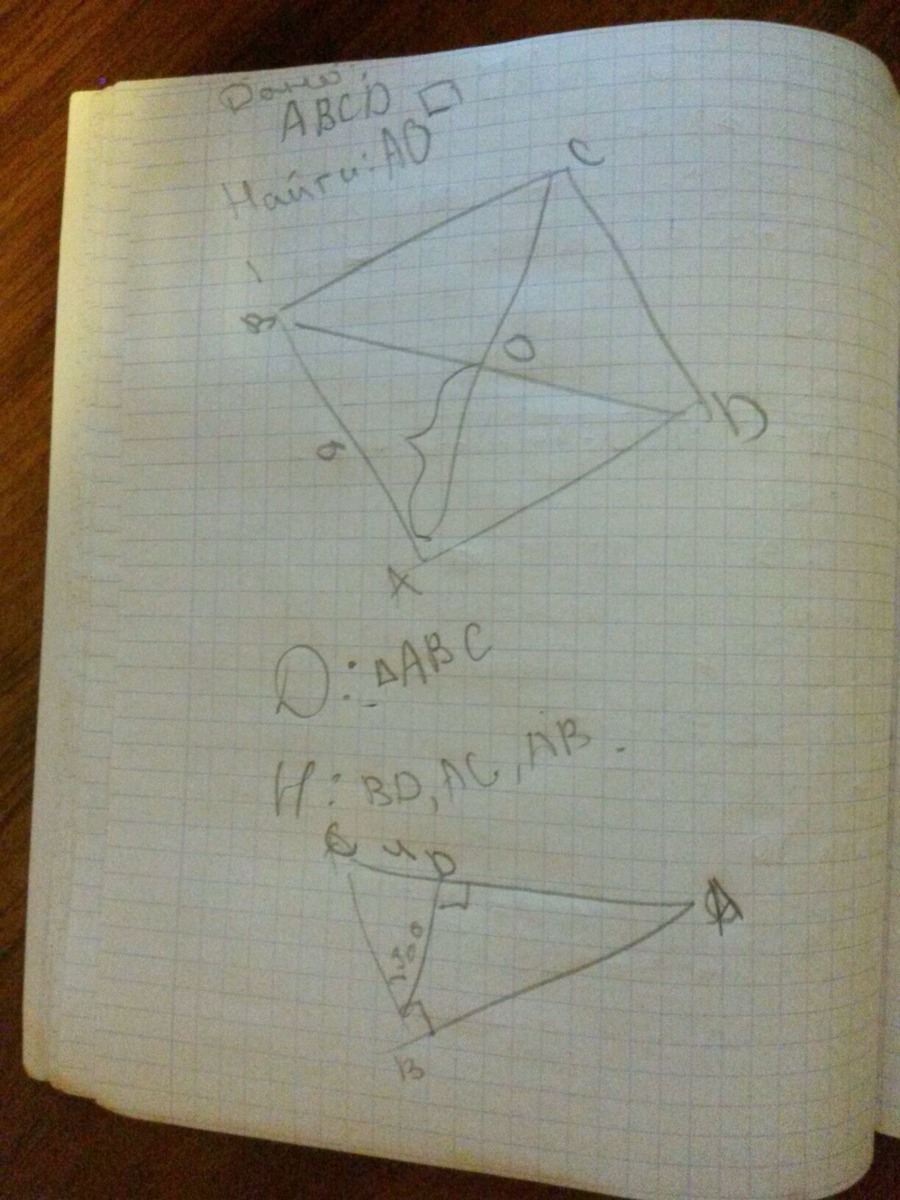 Дано:
ABCD □
Найти: AO
C
B
O
a
D
A
D: △ABC
H: BD, AC, AB.
C 4 D
A
30°
B